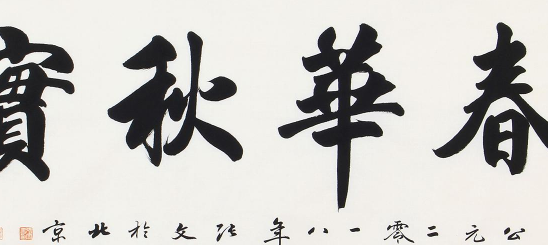 春華秋實
公元二零一八年张文於北京